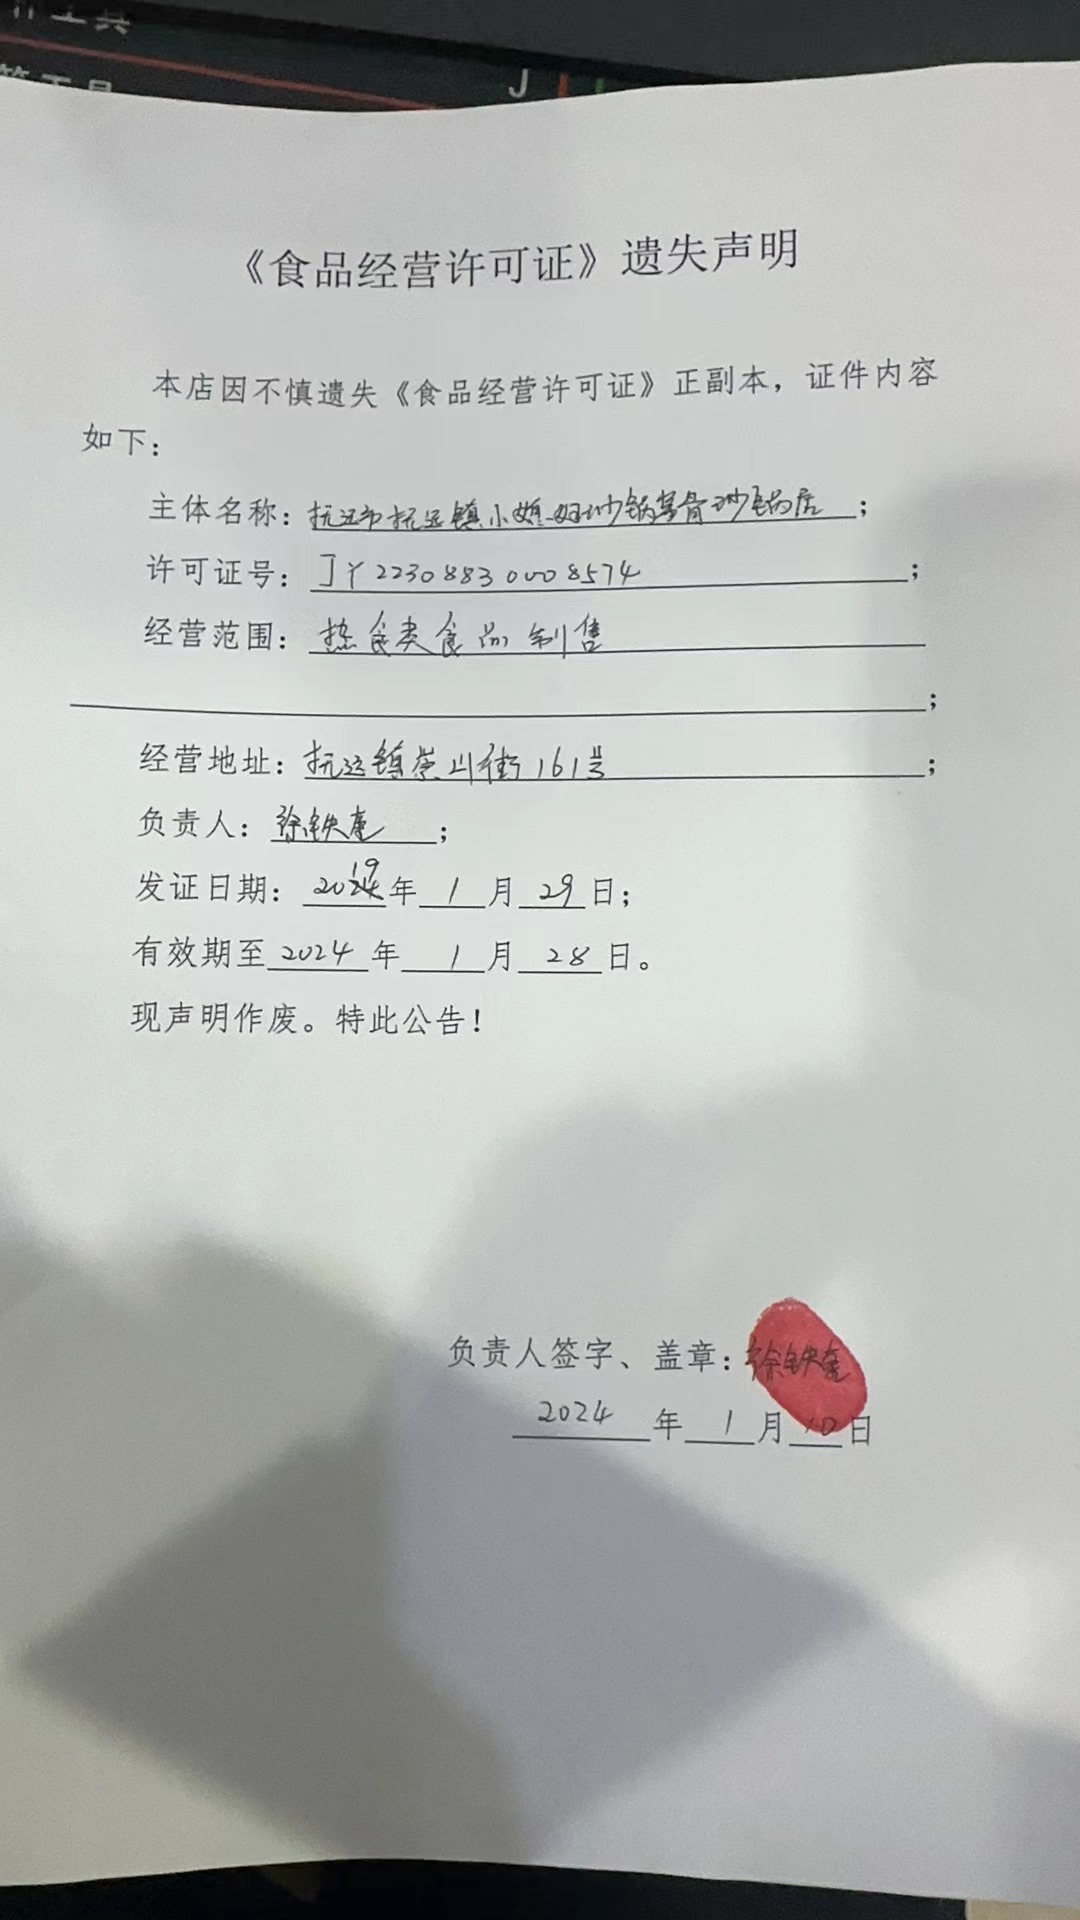 《食品经营许可证》遗失声明
本店因不慎遗失《食品经营许可证》正副本，证件内容
如下：
主体名称：抚远市抚远镇小媳妇砂锅掌骨砂锅居；
许可证号：JY22308830008574；
经营范围：热食类食品制售
；
经营地址：抚远镇崇山街161号；
负责人：徐铁奎；
发证日期：2019年1月29日；
有效期至2024年1月28日。
现声明作废。特此公告！
负责人签字、盖章：徐铁奎
2024年1月10日